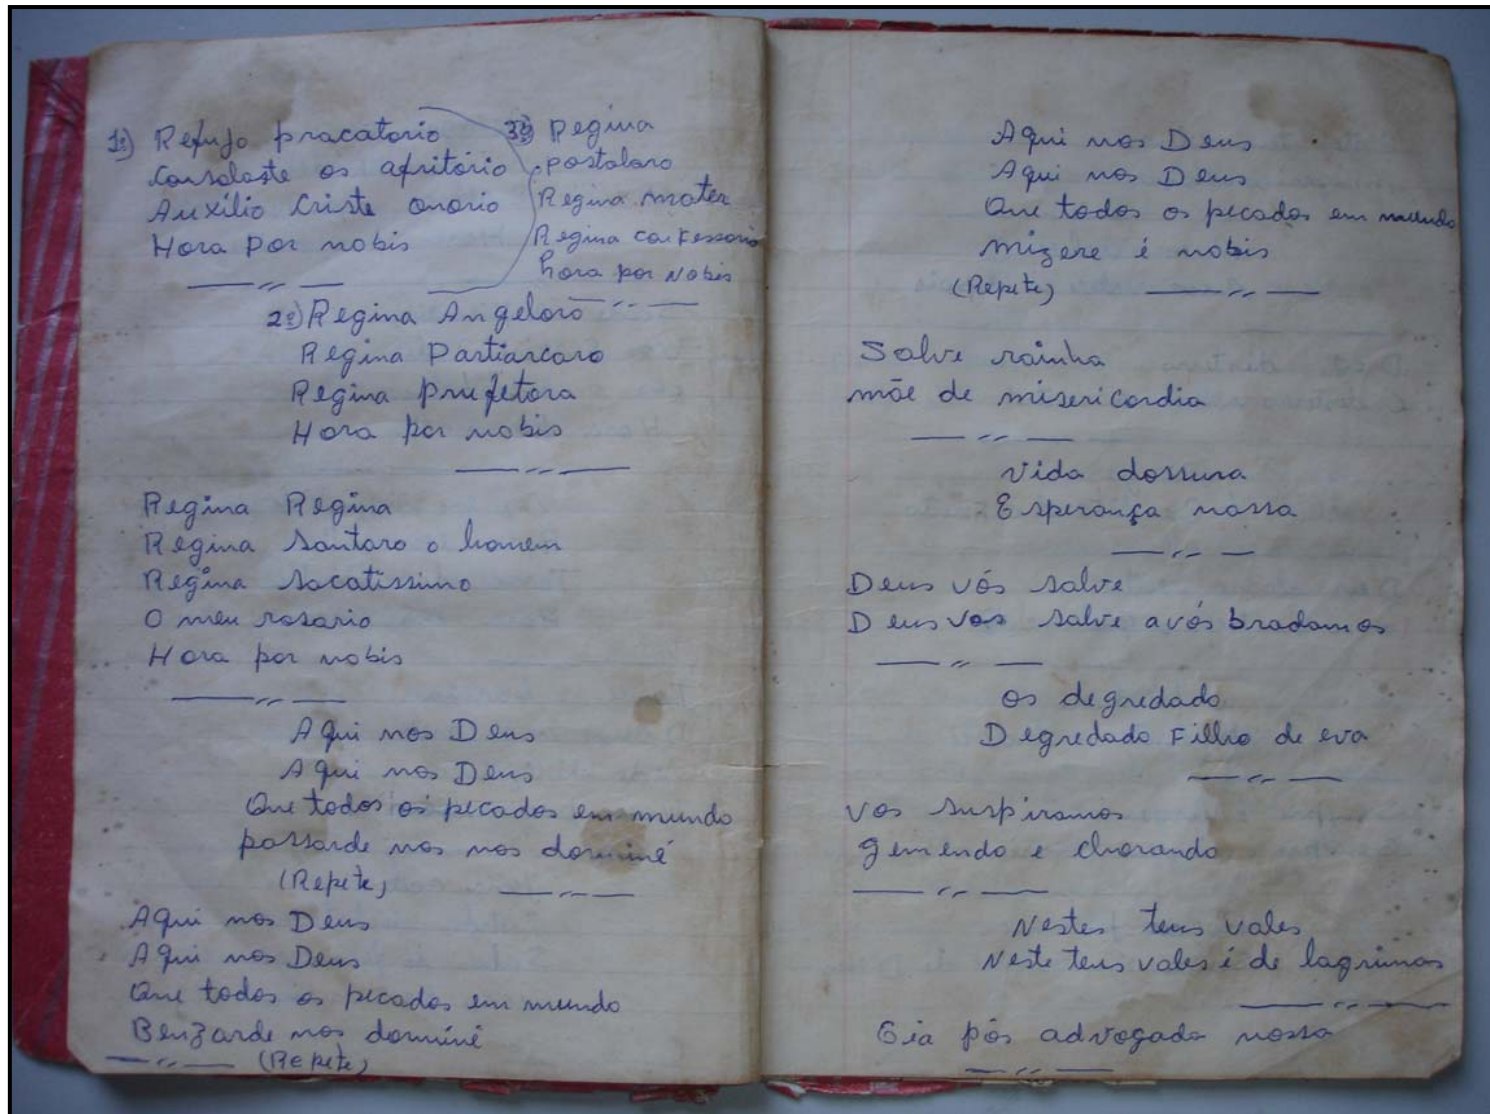 1º) Refujo pracatorio
Consolaste os afritório
Auxílio Criste onorio
Hora por nobis
3º) Regina
postolaro
Regina mater
Regina confessorio
hora por Nobis
2º) Regina Angeloro
Regina Partiarcaro
Regina prufetora
Hora por nobis
Regina Regina
Regina Santaro o homem
Regina Sacatissimo
O meu rosario
Hora por nobis
Aqui nos Deus
Aqui nos Deus
Que todos os pecados em mundo
passarde nos nos dorminé
(Repete)
Aqui nos Deus
Aqui nos Deus
Que todos os pecados em mundo
Benzarde nos dorminé
(Repete)
Aqui nos Deus
Aqui nos Deus
Que todos os pecados em mundo
Mizere é nobis
(Repete)
Salve rainha
mãe de misericordia
Vida dossura
Esperança nossa
Deus vós salve
Deus vos salve avós bradamos
os degredado
Degredado Filho de eva
Vos suspiramos
gemendo e chorando
Nestes teus vales
Neste teus vales é de lagrimas
Eia pós advogada nossa